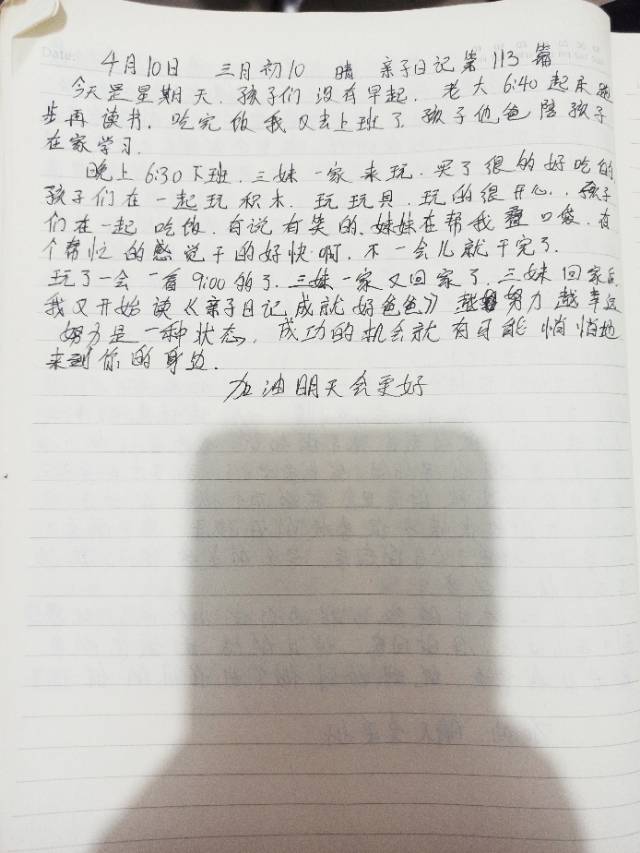 4月10日 三月初10 晴 亲子日记第113篇
今天是星期天.孩子们没有早起.老大6:40起床跑
步再读书.吃完饭我又去上班了.孩子他爸陪孩子
在家学习.
晚上6:30下班.三妹一家来玩.买了很的好吃的
孩子们在一起玩积木.玩玩具.玩的很开心..孩子
们在一起吃饭.有说有笑的.妹妹在帮我叠口袋.有
个帮忙的感觉干的好快啊.不一会儿就干完了.
玩了一会一看9:00的了.三妹一家又回家了.三妹回家后
我又开始读《亲子日记成就好爸爸》越努力越幸运
努力是一种状态,成功的机会就有可能悄悄地
来到你的身边.
加油明天会更好